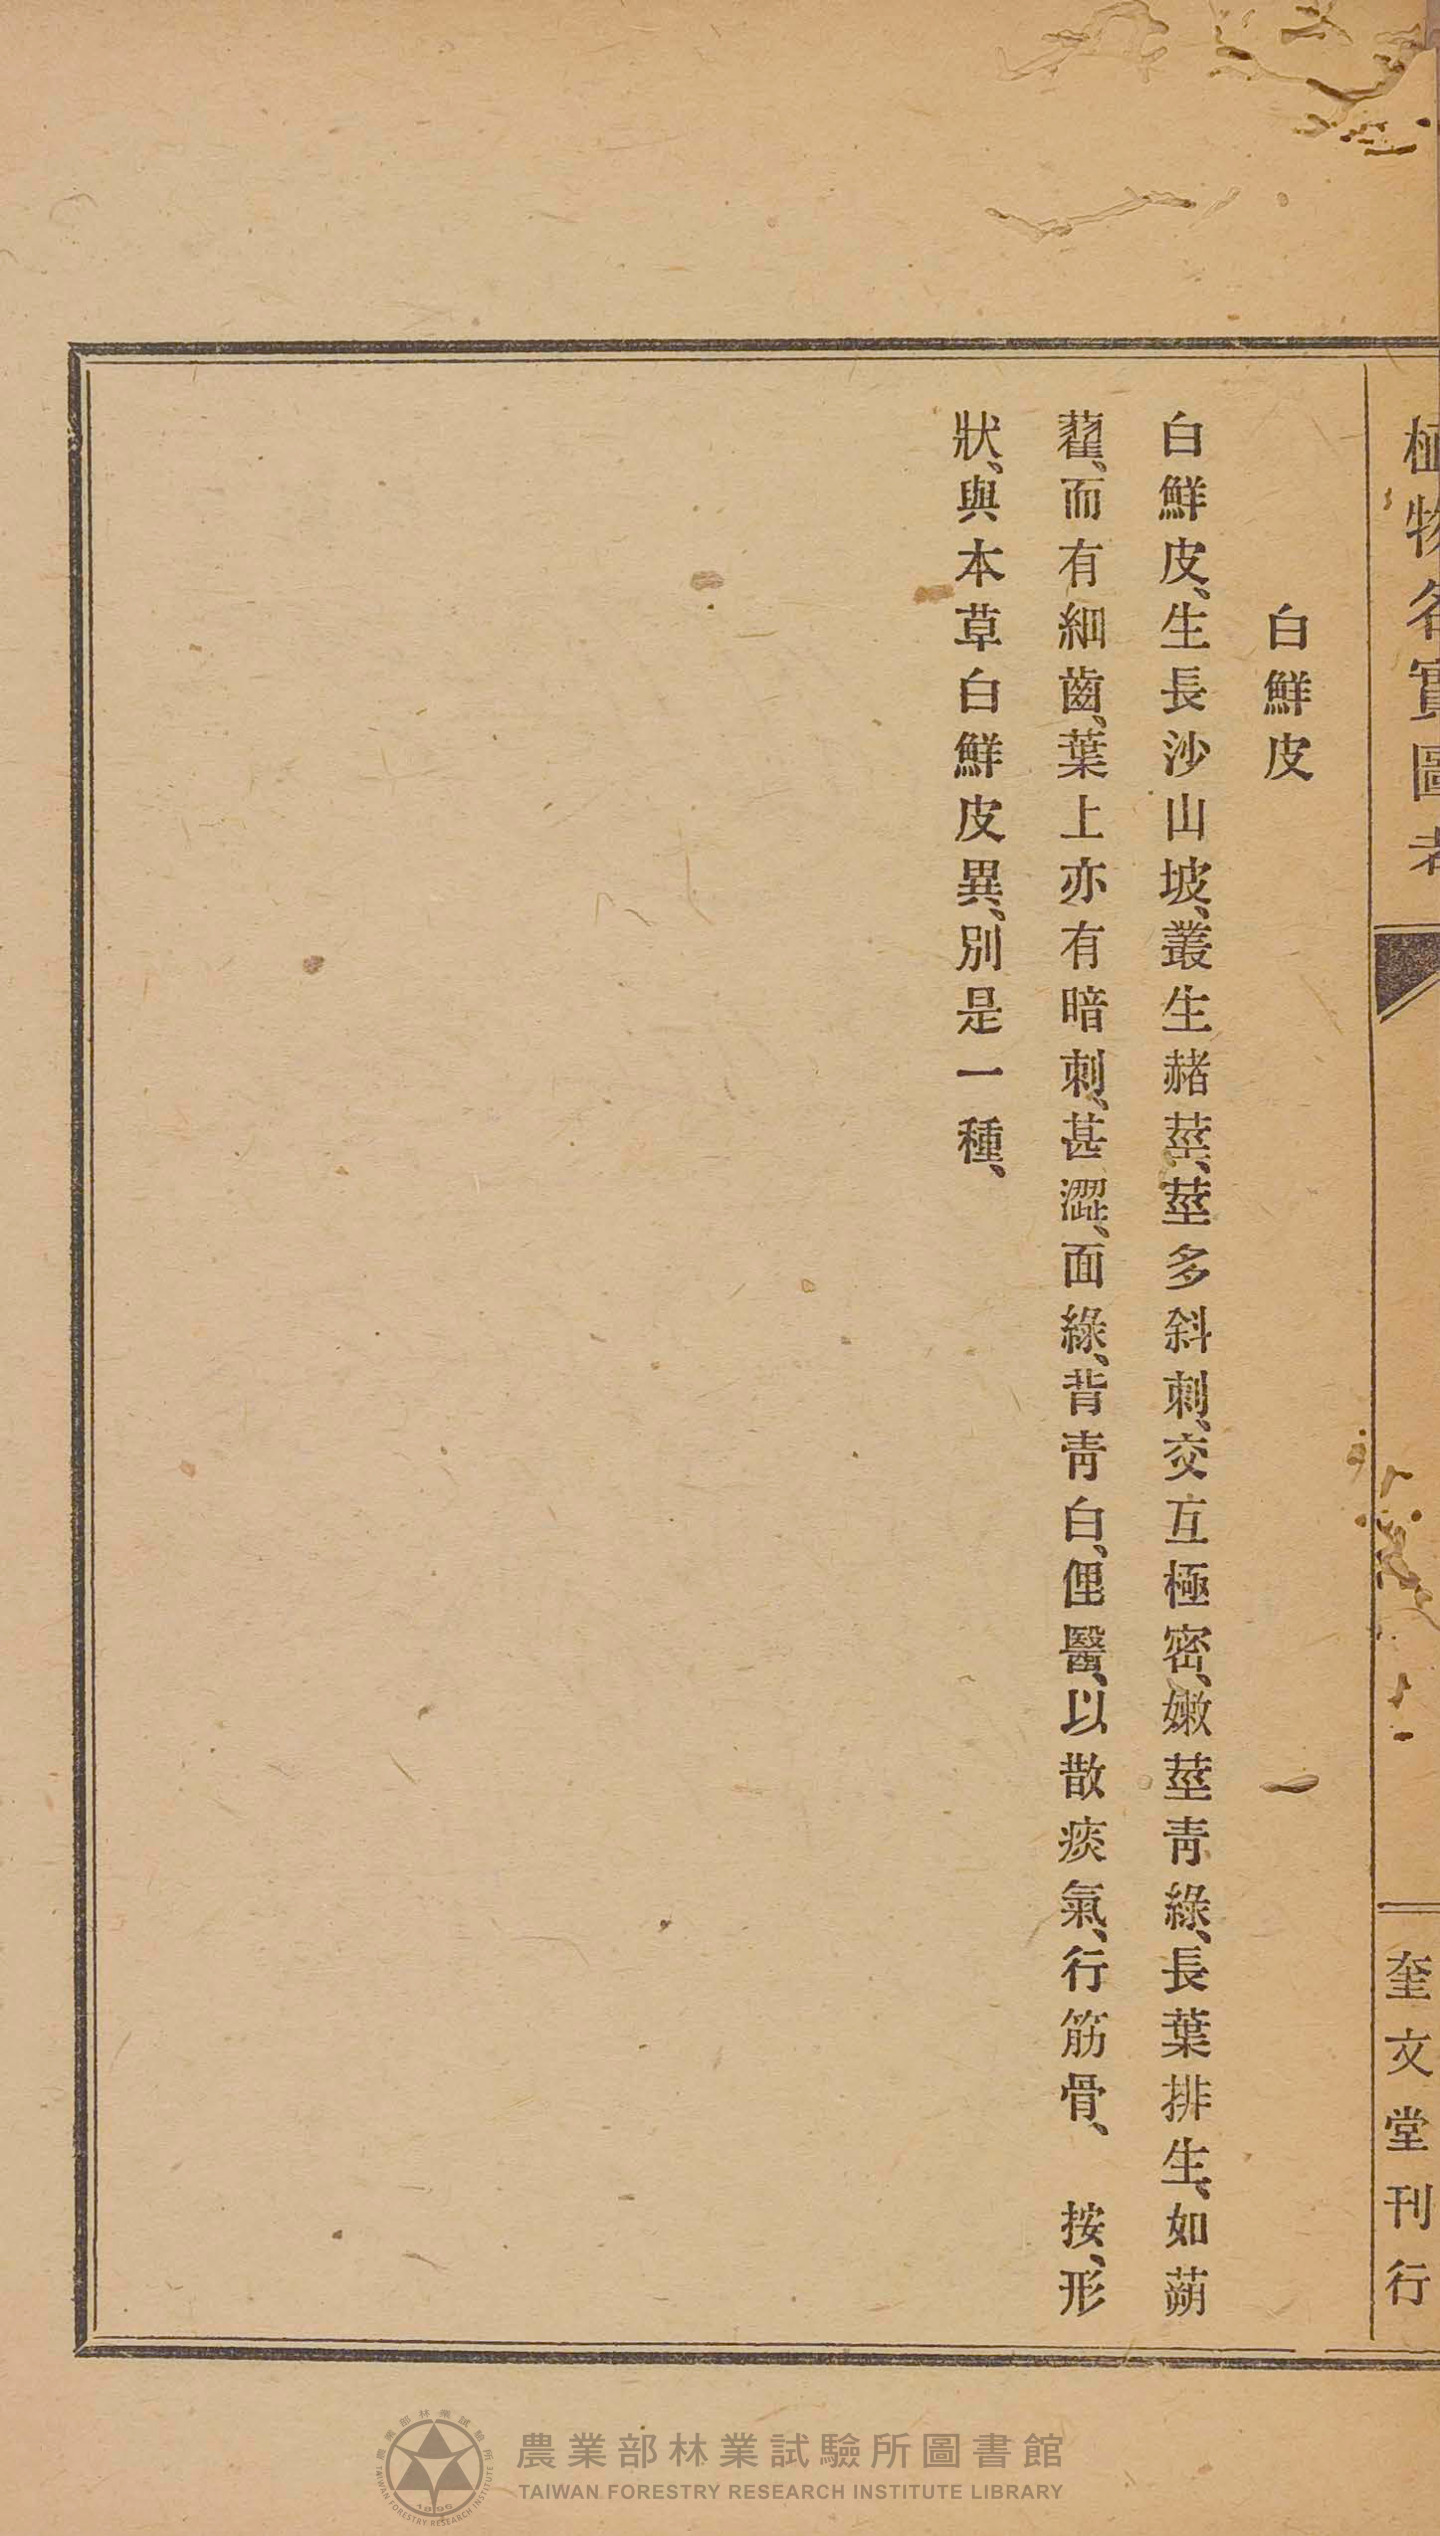 植物名實圖考
奎文堂刊行
白鮮皮
白鮮皮、生長沙山坡、叢生赭莖、莖多斜刺、交互極密、嫩莖青綠、長葉排生、如蒴
藋、而有細齒、葉上亦有暗刺、甚澀、面綠、背青白、俚醫、以散痰氣、行筋骨、　按、形
狀、與本草白鮮皮異、別是一種、
農業部林業試驗所圖書館
TAIWAN FORESTRY RESEARCH INSTITUTE LIBRARY
農業部林業試驗所
TAIWAN FORESTRY RESEARCH INSTITUTE
1895